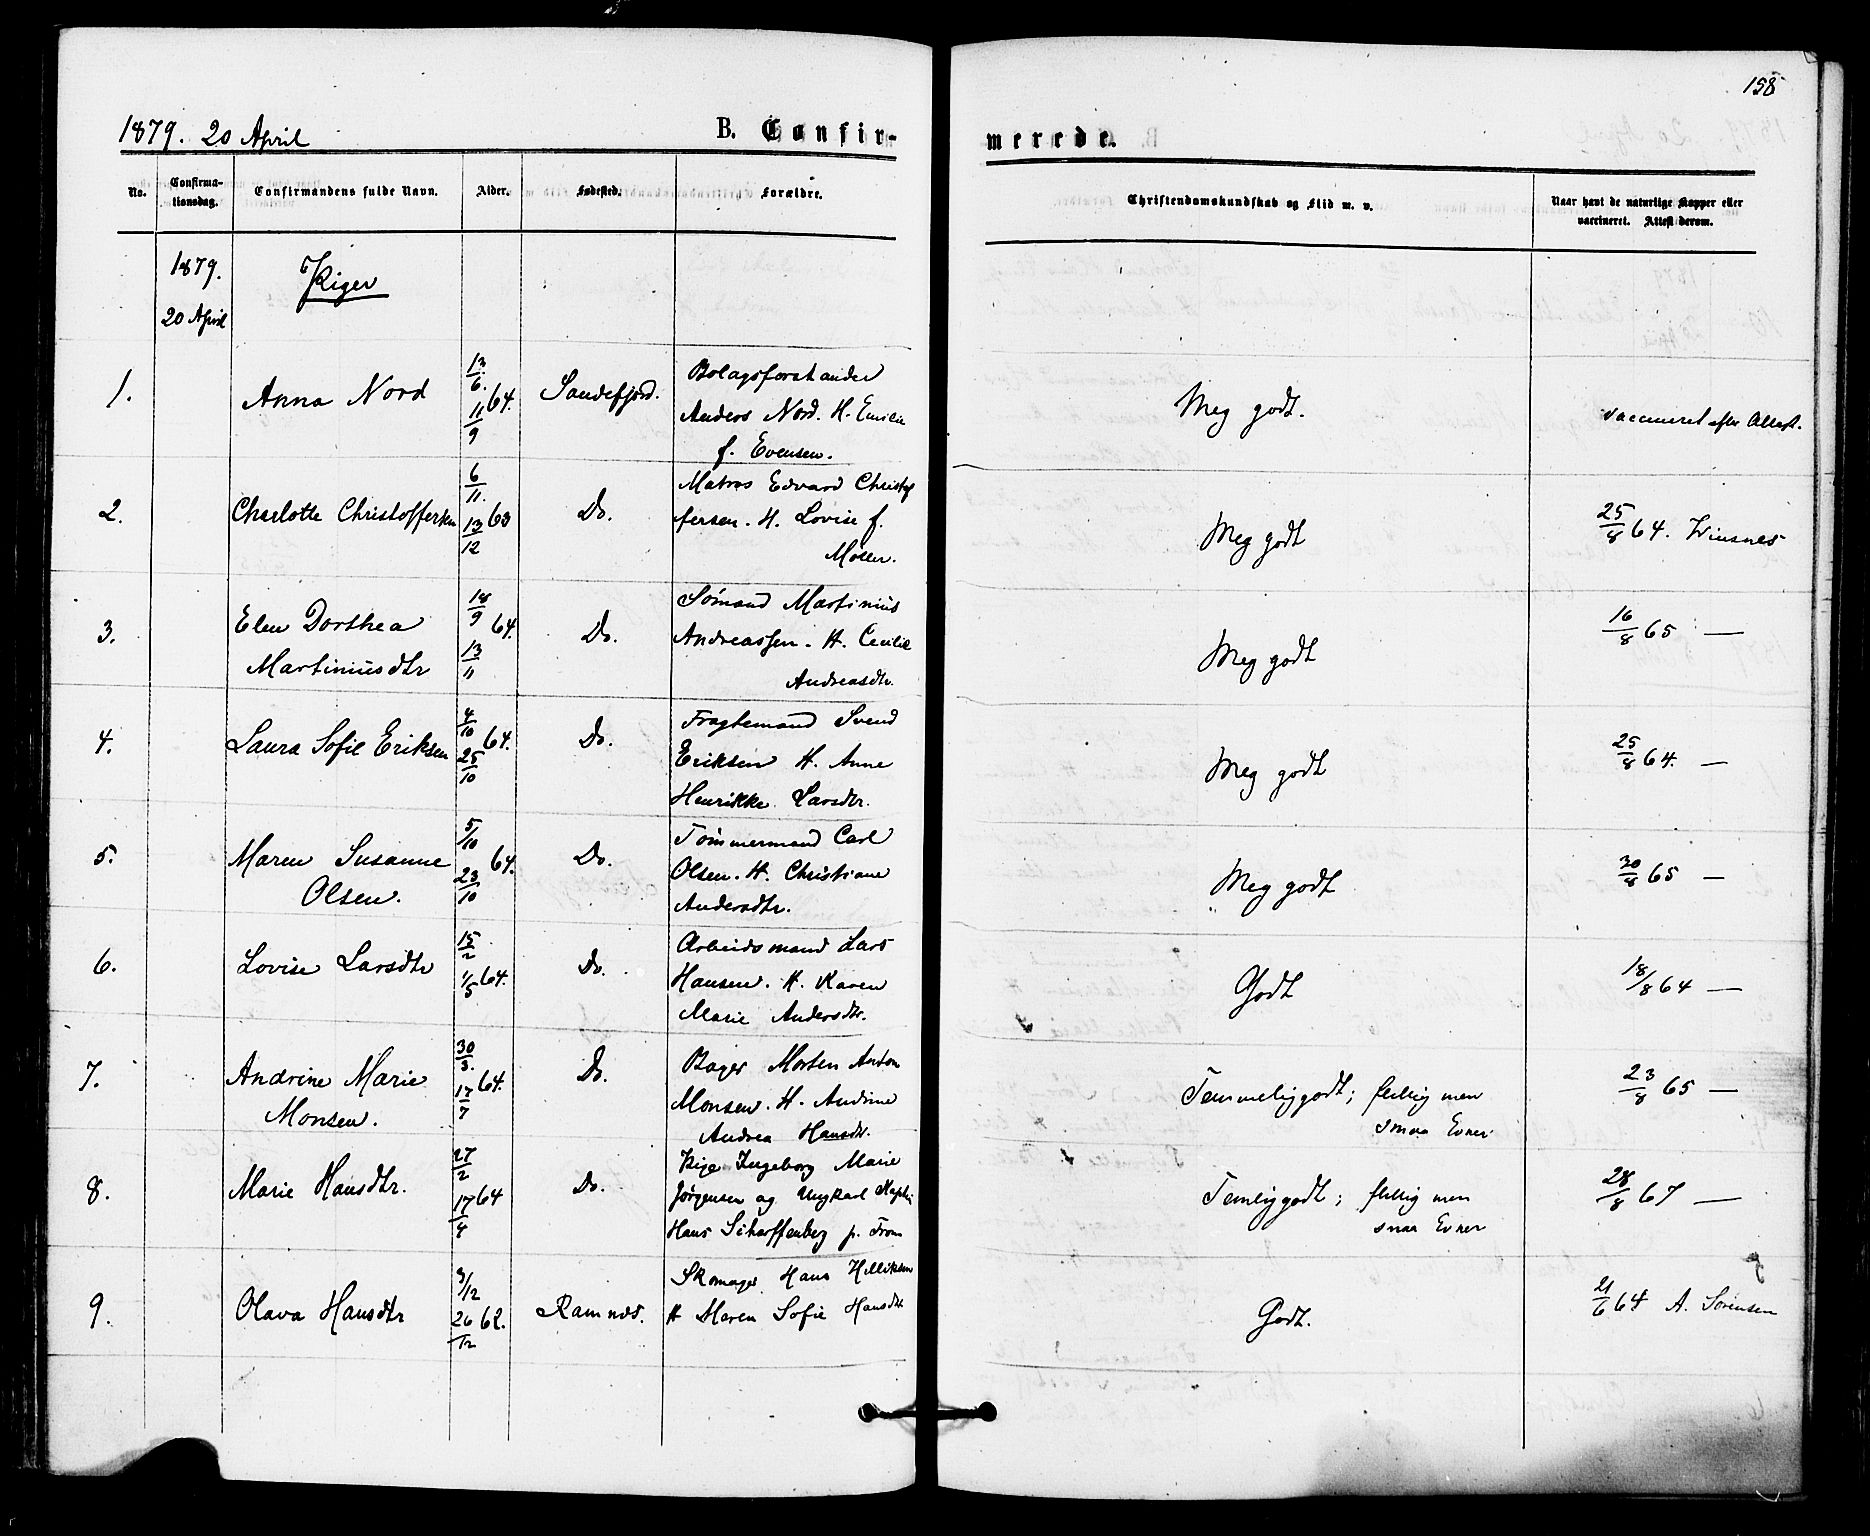 158
1879. 20 April
B. Confir-
merede.
No.
Confirma-
tionsdag.
Confirmandens fulde Navn.
Alder.
Fødested.
Forældre.
Christendomskundskab og Flid m. v.
Naar havt de naturlige Kopper eller
vaccineret. Attest derom.
1879.
20 April
Piger
1.
Anna Nord
13/6.
64.
11/9
Sandefjord.
Bolagsforstander
Anders Nord. H. Emilie
f. Evensen.
Meg godt.
vaccineret efter Attest.
2.
Charlotte Christoffersen
6/11.
63
13/12
Do.
Matros Edvard Christof
fersen. H. Lovise f.
Mosen.
Meg godt
25/8 64. Winsnes
3.
Elen Dorthea
Martiniusdtr
18/9
64.
13/11
Do.
Sømand Martinius
Andreassen. H. Cecilie
Andreasdtr.
Meg godt
16/8 65 —
4.
Laura Sofie Eriksen
4/10
64.
25/10
Do.
Fragtemand Svend
Eriksen H. Anne
Henrikke Larsdtr.
Meg godt
25/8 64. —
5.
Maren Susanne
Olsen.
5/10
64.
23/10
Do.
Tømmermand Carl
Olsen. H. Christiane
Andersdtr.
Meg godt
30/8 65 —
6.
Lovise Larsdtr
15/2
1/5 64.
Do.
Arbeidsmand Lars
Hansen. H. Karen
Marie Andersdtr.
Godt
18/8 64 —
7.
Andrine Marie
Monsen.
30/3.
64.
17/7
Do.
Bager Morten Anton
Monsen. H. Andrine
Andrea Hansdtr.
Temmeliggodt; flittig men
smaa Evner
23/8 65 —
8.
Marie Hansdtr.
27/2
64
17/4
Do.
Pige Ingeborg Marie
Jørgensen og Ungkarl
Hans Scharffenberg p. Trom
Temligodt; flittig men
smaa Evner
28/8 67 —
9.
Olava Hansdtr
3/12
62.
26/12
Ramnes.
Skomager Hans
H Maren Sofie Hansdtr
Godt.
21/6 64 A. Sørensen